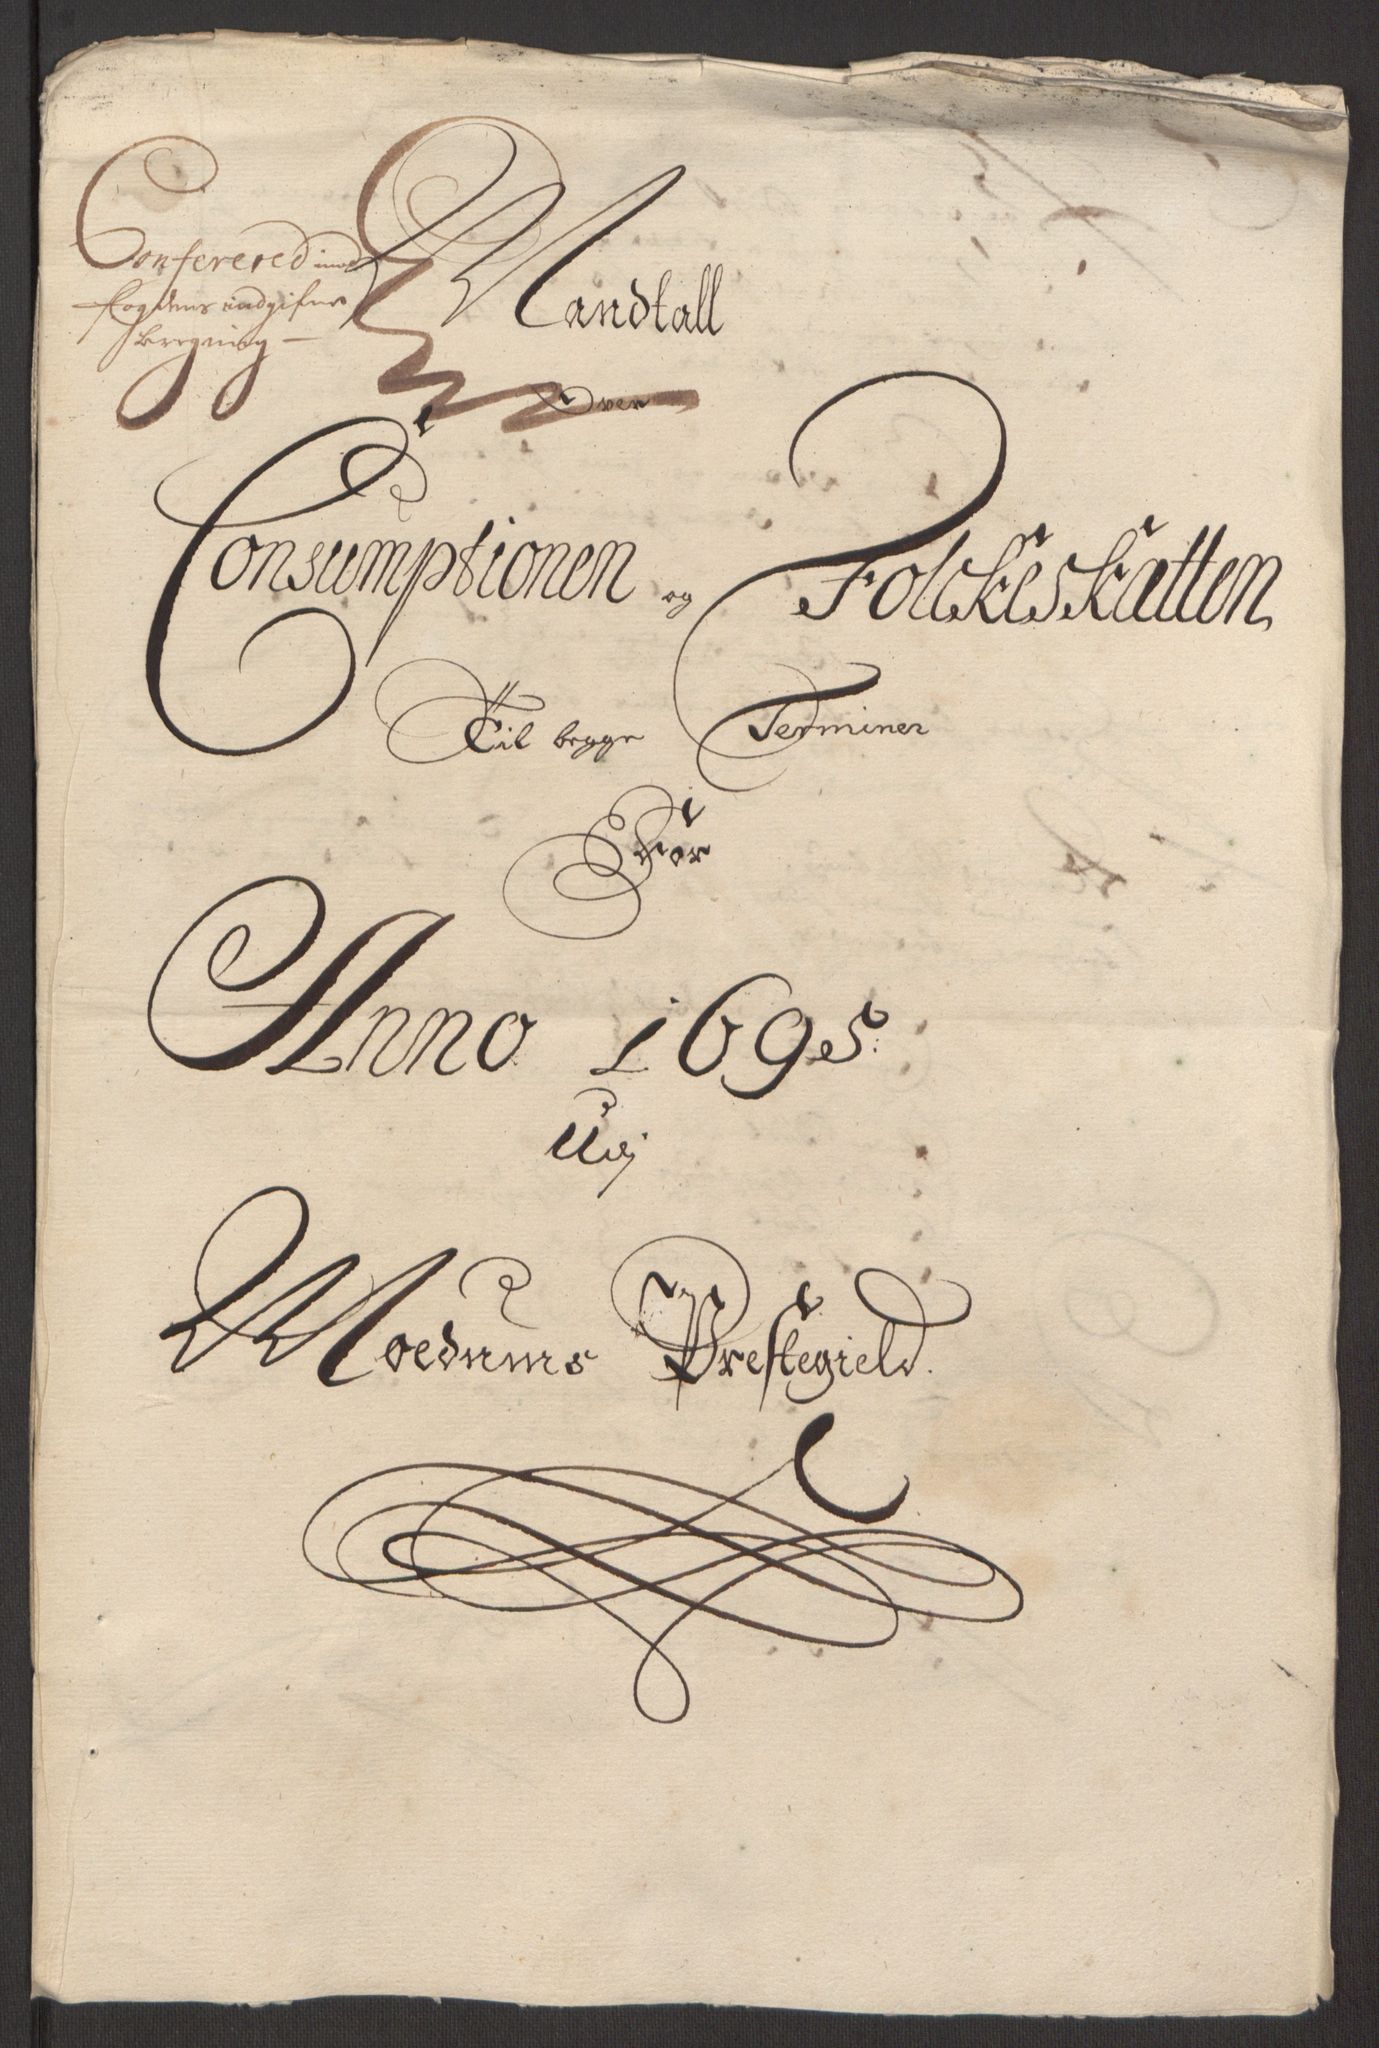 Confereret imod
fogdens indgifne
Beregning
Mandtall
Over
Consumptionen og Folckeskatten
Til begge Terminer
For
Anno 1695.
Udj
Modums Prestegield.